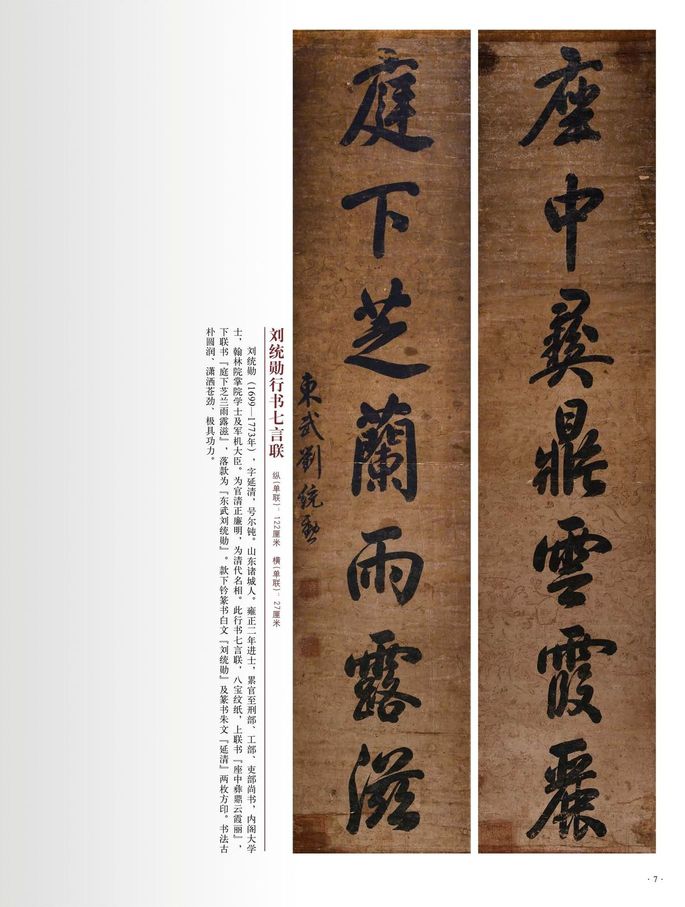 座中彝鼎雲霞麗
庭下芝蘭雨露滋
東武劉統勳
刘统勋行书七言联
纵(单联)：122厘米　横(单联)：27厘米
刘统勋（1699—1773年），字延清，号尔钝。山东诸城人。雍正二年进士，累官至刑部、工部、吏部尚书，内阁大学
士，翰林院掌院学士及军机大臣。为官清正廉明，为清代名相。此行书七言联，八宝纹纸，上联书『座中彝鼎云霞丽』，
下联书『庭下芝兰雨露滋』，落款为『东武刘统勋』。款下钤篆书白文『刘统勋』及篆书朱文『延清』两枚方印。书法古
朴圆润、潇洒苍劲，极具功力。
·7·